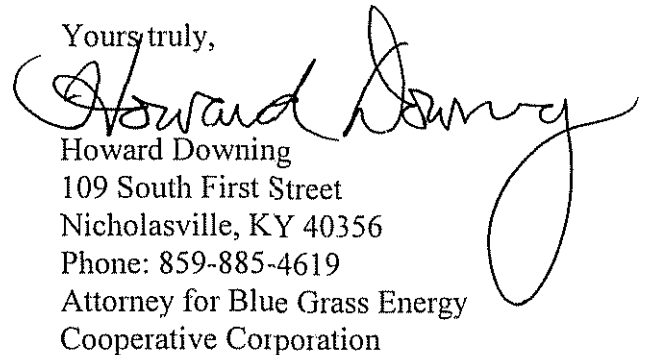 Yours truly,
Howard Downing
Howard Downing
109 South First Street
Nicholasville, KY 40356
Phone: 859-885-4619
Attorney for Blue Grass Energy
Cooperative Corporation